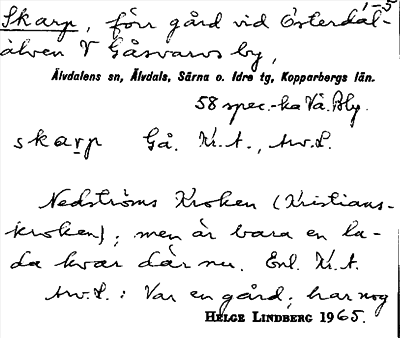 1-5
Skarp, förr gård vid Österdal-
älven V Gåsvarvs by,
Älvdalens sn, Älvdals, Särna o. Idre tg, Kopparbergs län.
58 spec.-ka Vä. Bly.
skarp Gå. Kr. A., Aw. L.
Nedströms Kroken (Kristians-
kroken); men är bara en la-
da kvar där nu. Enl. Kr. A.
Aw. L.: Var en gård; har nog
HELGE LINDBERG 1965.